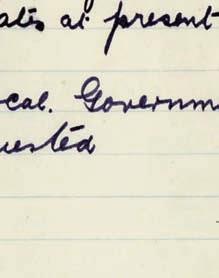 ates at present
ocal. Governm
uested